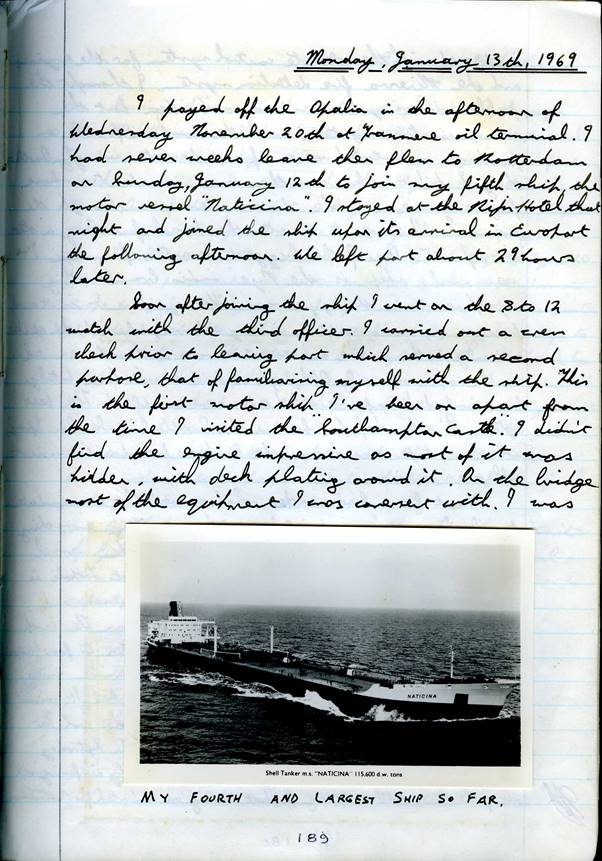 Monday, January 13th, 1969
I payed off the Opalia in the afternoon of
Wednesday November 20th at Tranmere oil terminal. I
had seven weeks leave then flew to Rotterdam
on Sunday, January 12th to join my fifth ship, the
motor vessel "Naticina". I stayed at the Rijn Hotel that
night and joined the ship upon its arrival in Europort
the following afternoon. We left port about 29 hours
later.
Soon after joining the ship I went on the 8 to 12
watch with the third officer. I carried out a crew
check prior to leaving port which served a second
purpose, that of familiarising myself with the ship. This
is the first motor ship I've been on apart from
the time I visited the "Southampton Castle". I didn't
find the engine impressive as most of it was
hidden, with deck plating around it. On the bridge
most of the equipment I was conversent with. I was
NATICINA
Shell Tanker m.s. "NATICINA" 115,600 d.w. tons
MY FOURTH AND LARGEST SHIP SO FAR.
189